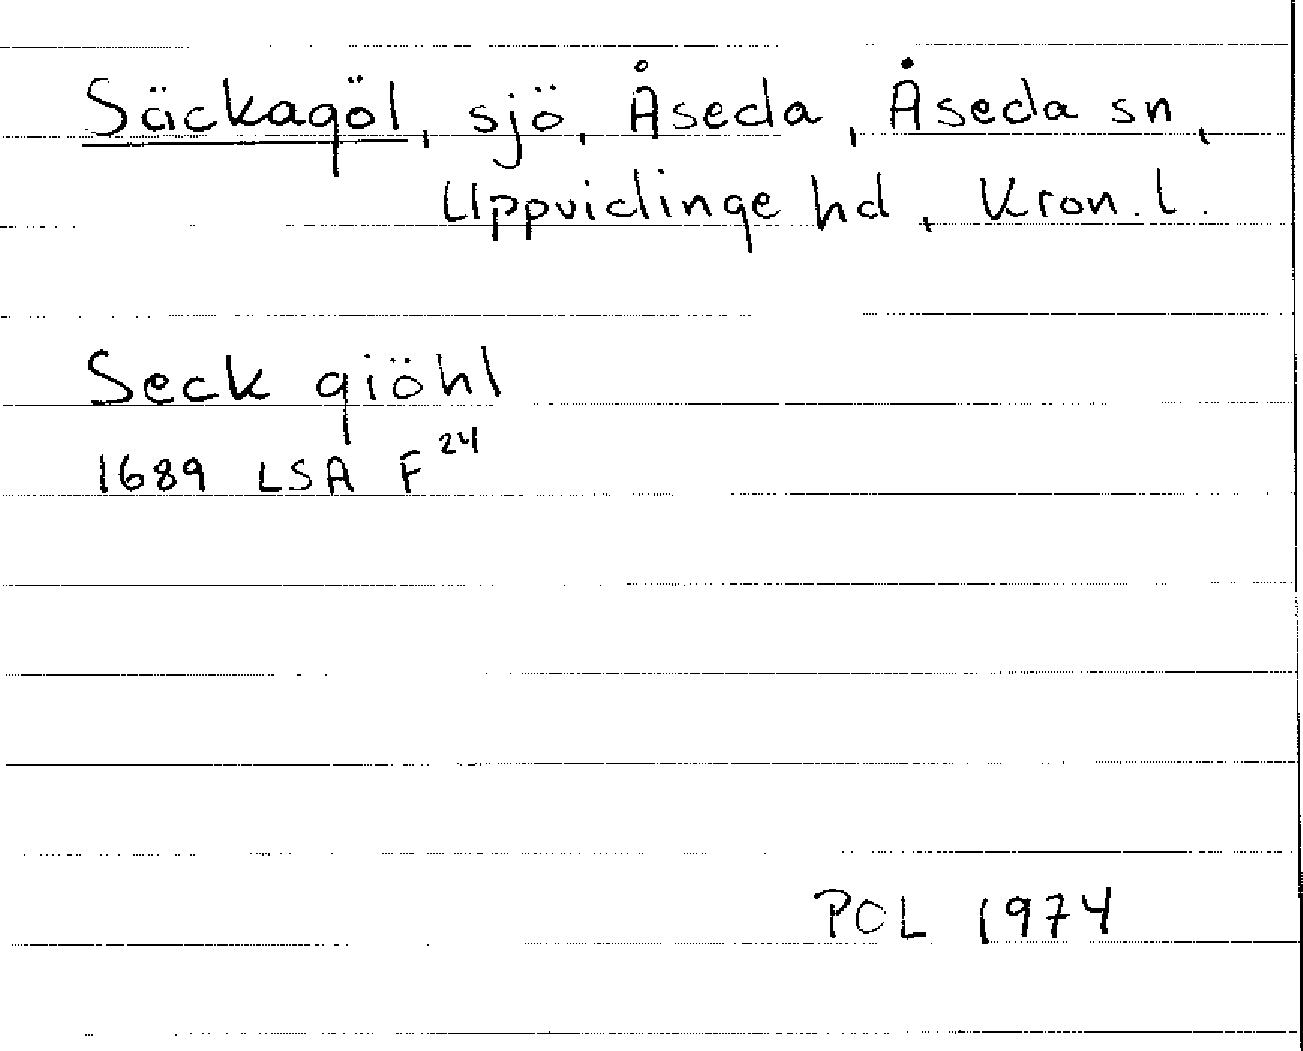 Säckagöl, sjö, Åseda, Åseda sn,
Uppvidinge hd, Kron. l.
Seck giöhl
1689 LSA F 24
POL 1974